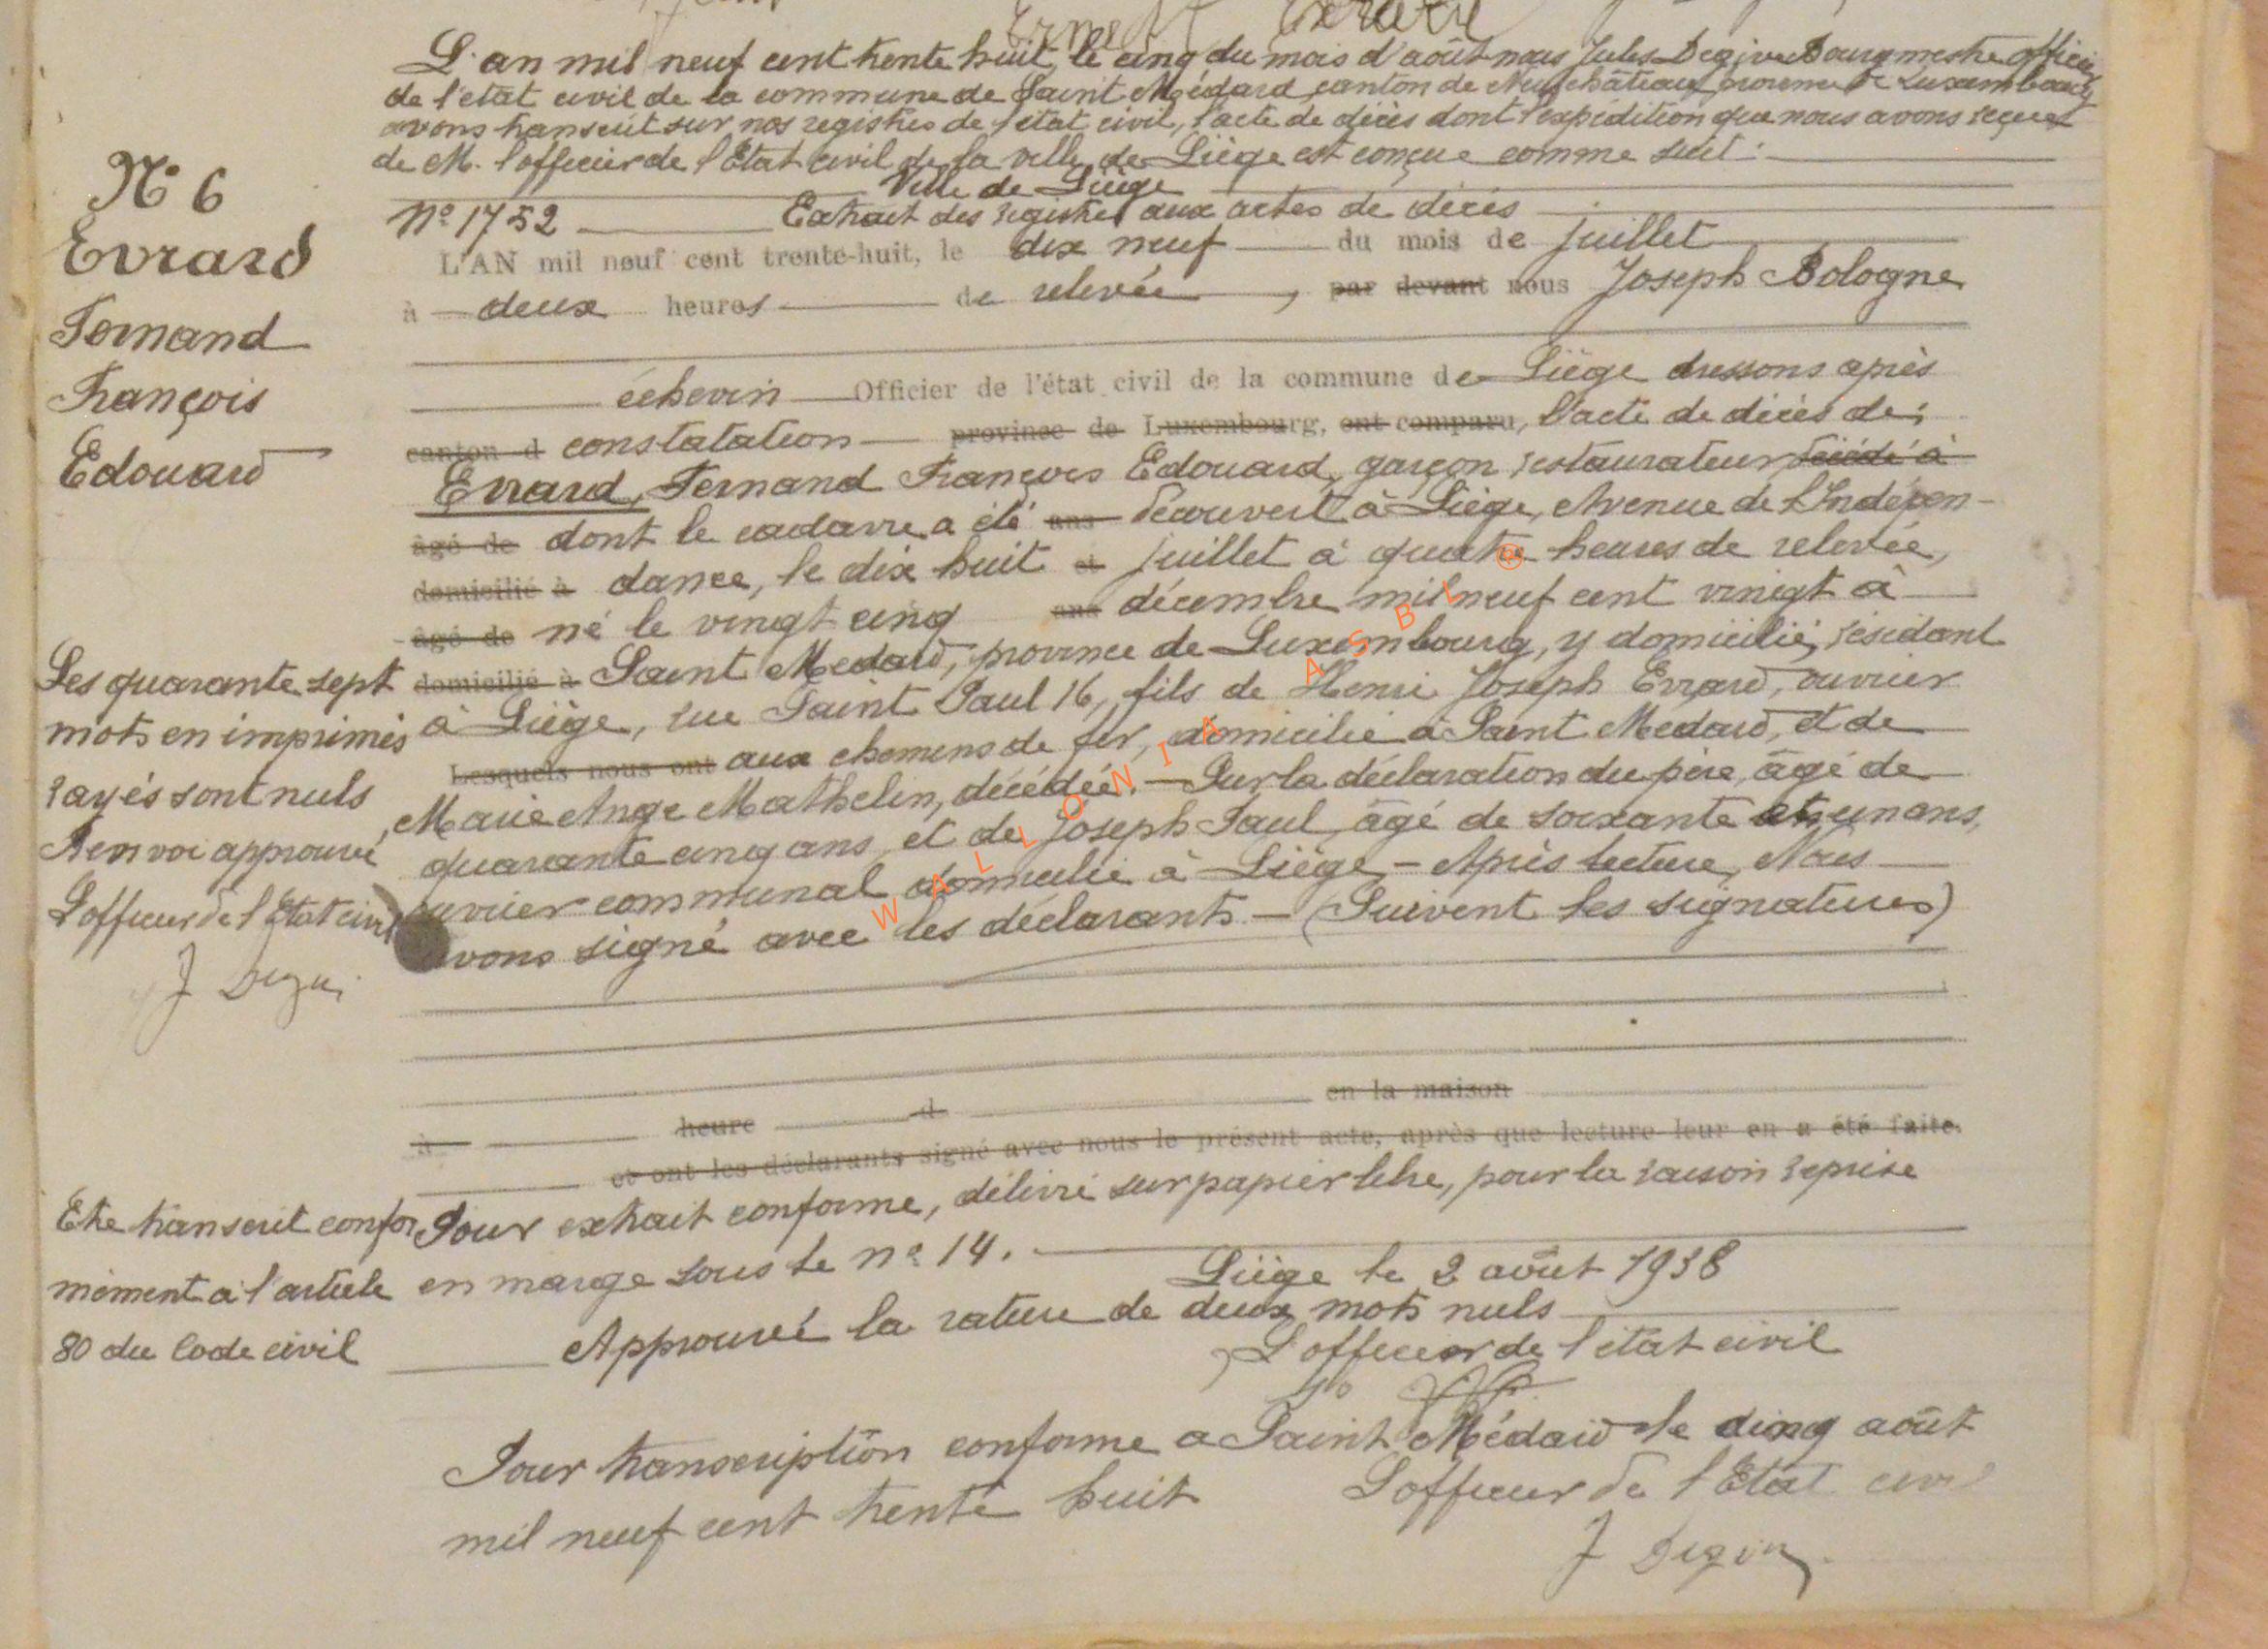 Ernest Evrard
L'an mil neuf cent trente huit, le cinq du mois d'août nous Jules Degive Bourgmestre officier
de l'état civil de la commune de Saint Médard, canton de Neufchâteau, province de Luxembourg
avons transcrit sur nos registres de l'état civil, l'acte de décès dont l'expédition que nous avons reçue
de M. l'officier de l'Etat civil de la ville de Liège est conçue comme suit :
N° 6
Evrard
Fernand
François
Edouard
Ville de Liège
N° 1752 Extrait des registres aux actes de décès
L'AN mil neuf cent trente-huit, le dix neuf du mois de juillet
à deux heures de relevée, par devant nous Joseph Bologne
échevin Officier de l'état civil de la commune de Liège dressons après
canton d constatation province de Luxembourg, ont comparu, l'acte de décès de :
Evrard, Fernand François Edouard, garçon restaurateur décédé à
âgé de dont le cadavre a été ans découvert à Liège, Avenue de l'Indépen-
domicilié à dance, le dix huit et juillet à quatre heures de relevée,
âgé de né le vingt cinq ans décembre mil neuf cent vingt à
domicilié à Saint Medard, province de Luxembourg, y domicilié, résidant
à Liège, rue Saint Paul 16, fils de Henri Joseph Evrard, ouvrier
Lesquels nous ont aux chemins de fer, domicilié à Saint Medard, et de
Marie Ange Mathelin, décédée. — Sur la déclaration du père, âgé de
quarante cinq ans, et de Joseph Paul, âgé de soixante et un ans,
ouvrier communal domicilié à Liège — Après lecture, Nous
avons signé avec les déclarants — (Suivent les signatures)
Les quarante sept
mots en imprimés
rayés sont nuls
Renvoi approuvé
L'officier de l'Etat civil
WALLONIA ASBL ®
à heure d en la maison
et ont les déclarants signé avec nous le présent acte, après que lecture leur en a été faite.
Pour extrait conforme, délivré sur papier libre, pour la raison reprise
en marge sous le n° 14.
Liège le 2 août 1938
Approuvé la rature de deux mots nuls
L'officier de l'état civil
Etre transcrit confor
mément à l'article
80 du Code civil
Pour transcription conforme a Saint Médard le cinq août
mil neuf cent trente huit L'officier de l'Etat civil